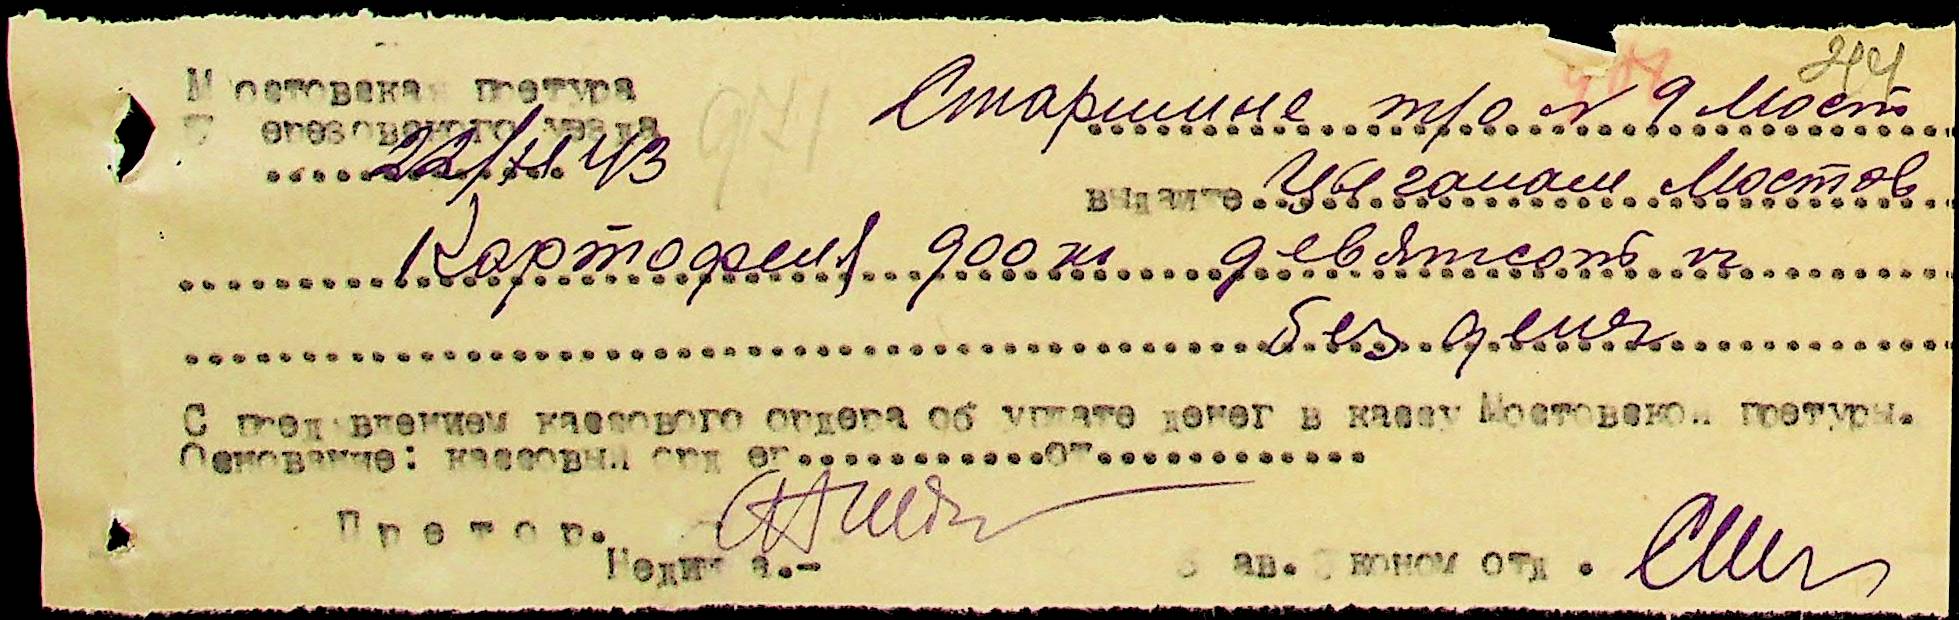 Мостовская претура
Березовского уезда
22/XI 43
971
244
Старшине т/о № 9 Мост
выдайте Цыганам Мостов
Картофеля 900 кг девятсот кг
без денег
С предъявлением кассового ордера об уплате денег в кассу Мостовской претуры.
Основание: кассовый орд ер............от.............
Претор.
Недина.-
Зав. Эконом отд .